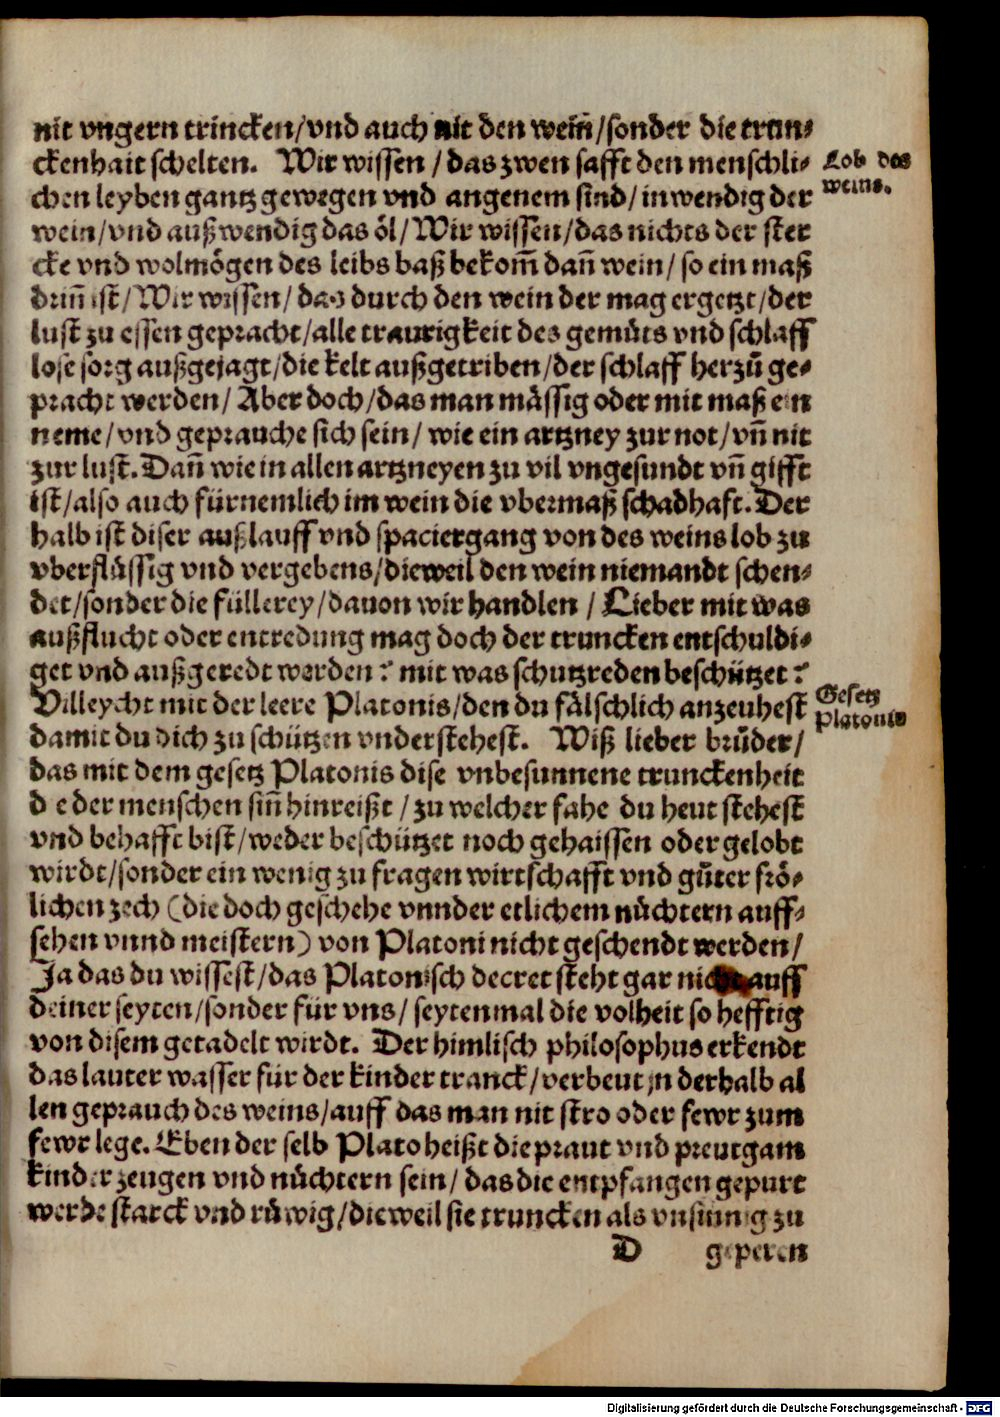 nit vngern trincken/vnd auch nit den wein̄/sonder die trun⸗
ckenhait schelten. Wir wissen / das zwen safft den menschli⸗
Lob des
weins.
chen leyben gantz gewegen vnd angenem sind/ inwendig der
wein/vnd außwendig das öl/ Wir wissen/das nichts der ster
cke vnd wolmögen des leibs baß bekom̄ dañ wein/ so ein maß
driñ ist/ Wir wissen/ das durch den wein der mag ergetzt/der
lust zu essen gepracht/alle traurigkeit des gemüts vnd schlaff
lose sorg außgejagt/die kelt außgetriben/der schlaff herzů ge⸗
pracht werden/ Aber doch/das man mässig oder mit maß ein
neme/vnd geprauche sich sein/ wie ein artzney zur not/vñ nit
zur lust. Dañ wie in allen artzneyen zu vil vngesundt vñ gifft
ist/also auch fürnemlich im wein die vbermaß schadhaft. Der
halb ist diser außlauff vnd spaciergang von des weins lob zu
vberflüssig vnd vergebens/dieweil den wein niemandt schen⸗
det/sonder die füllerey/dauon wir handlen / Lieber mit was
außflucht oder entredung mag doch der truncken entschuldi⸗
get vnd außgeredt werden? mit was schutzreden beschützet?
Villeycht mit der leere Platonis/den du fälschlich anzeuhest
Gesetz
Platonis
damit du dich zu schützen vnderstehest. Wiß lieber brůder/
das mit dem gesetz Platonis dise vnbesunnene trunckenheit
die der menschen siñ hinreißt / zu welcher fahe du heut stehest
vnd behafft bist/weder beschützet noch gehaissen oder gelobt
wirdt/sonder ein wenig zu fragen wirtschafft vnd gůter frö⸗
lichen zech (die doch geschehe vnnder etlichem nüchtern auff⸗
sehen vnnd meistern) von Platoni nicht geschendt werden/
Ja das du wissest/das Platonisch decret steht gar nicht auff
deiner seyten/sonder für vns/ seytenmal die volheit so hefftig
von disem getadelt wirdt. Der himlisch philosophus erkendt
das lauter wasser für der kinder tranck/verbeut jn derhalb al
len geprauch des weins/auff das man nit stro oder fewr zum
fewr lege. Eben der selb Plato heißt die praut vnd preutgam
kinder zeugen vnd nüchtern sein/ das die entpfangen gepurt
werde starck vnd růwig/dieweil sie truncken als vnsinnig zu
D geperen
Digitalisierung gefördert durch die Deutsche Forschungsgemeinschaft - DFG